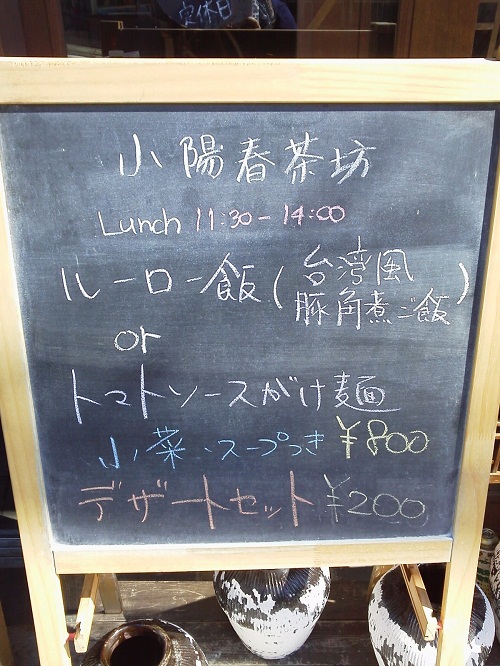 定休日
小陽春茶坊
Lunch 11:30-14:00
ルーロー飯(台湾風
豚角煮ご飯)
or
トマトソースがけ麺
小菜・スープつき ¥800
デザートセット ¥200